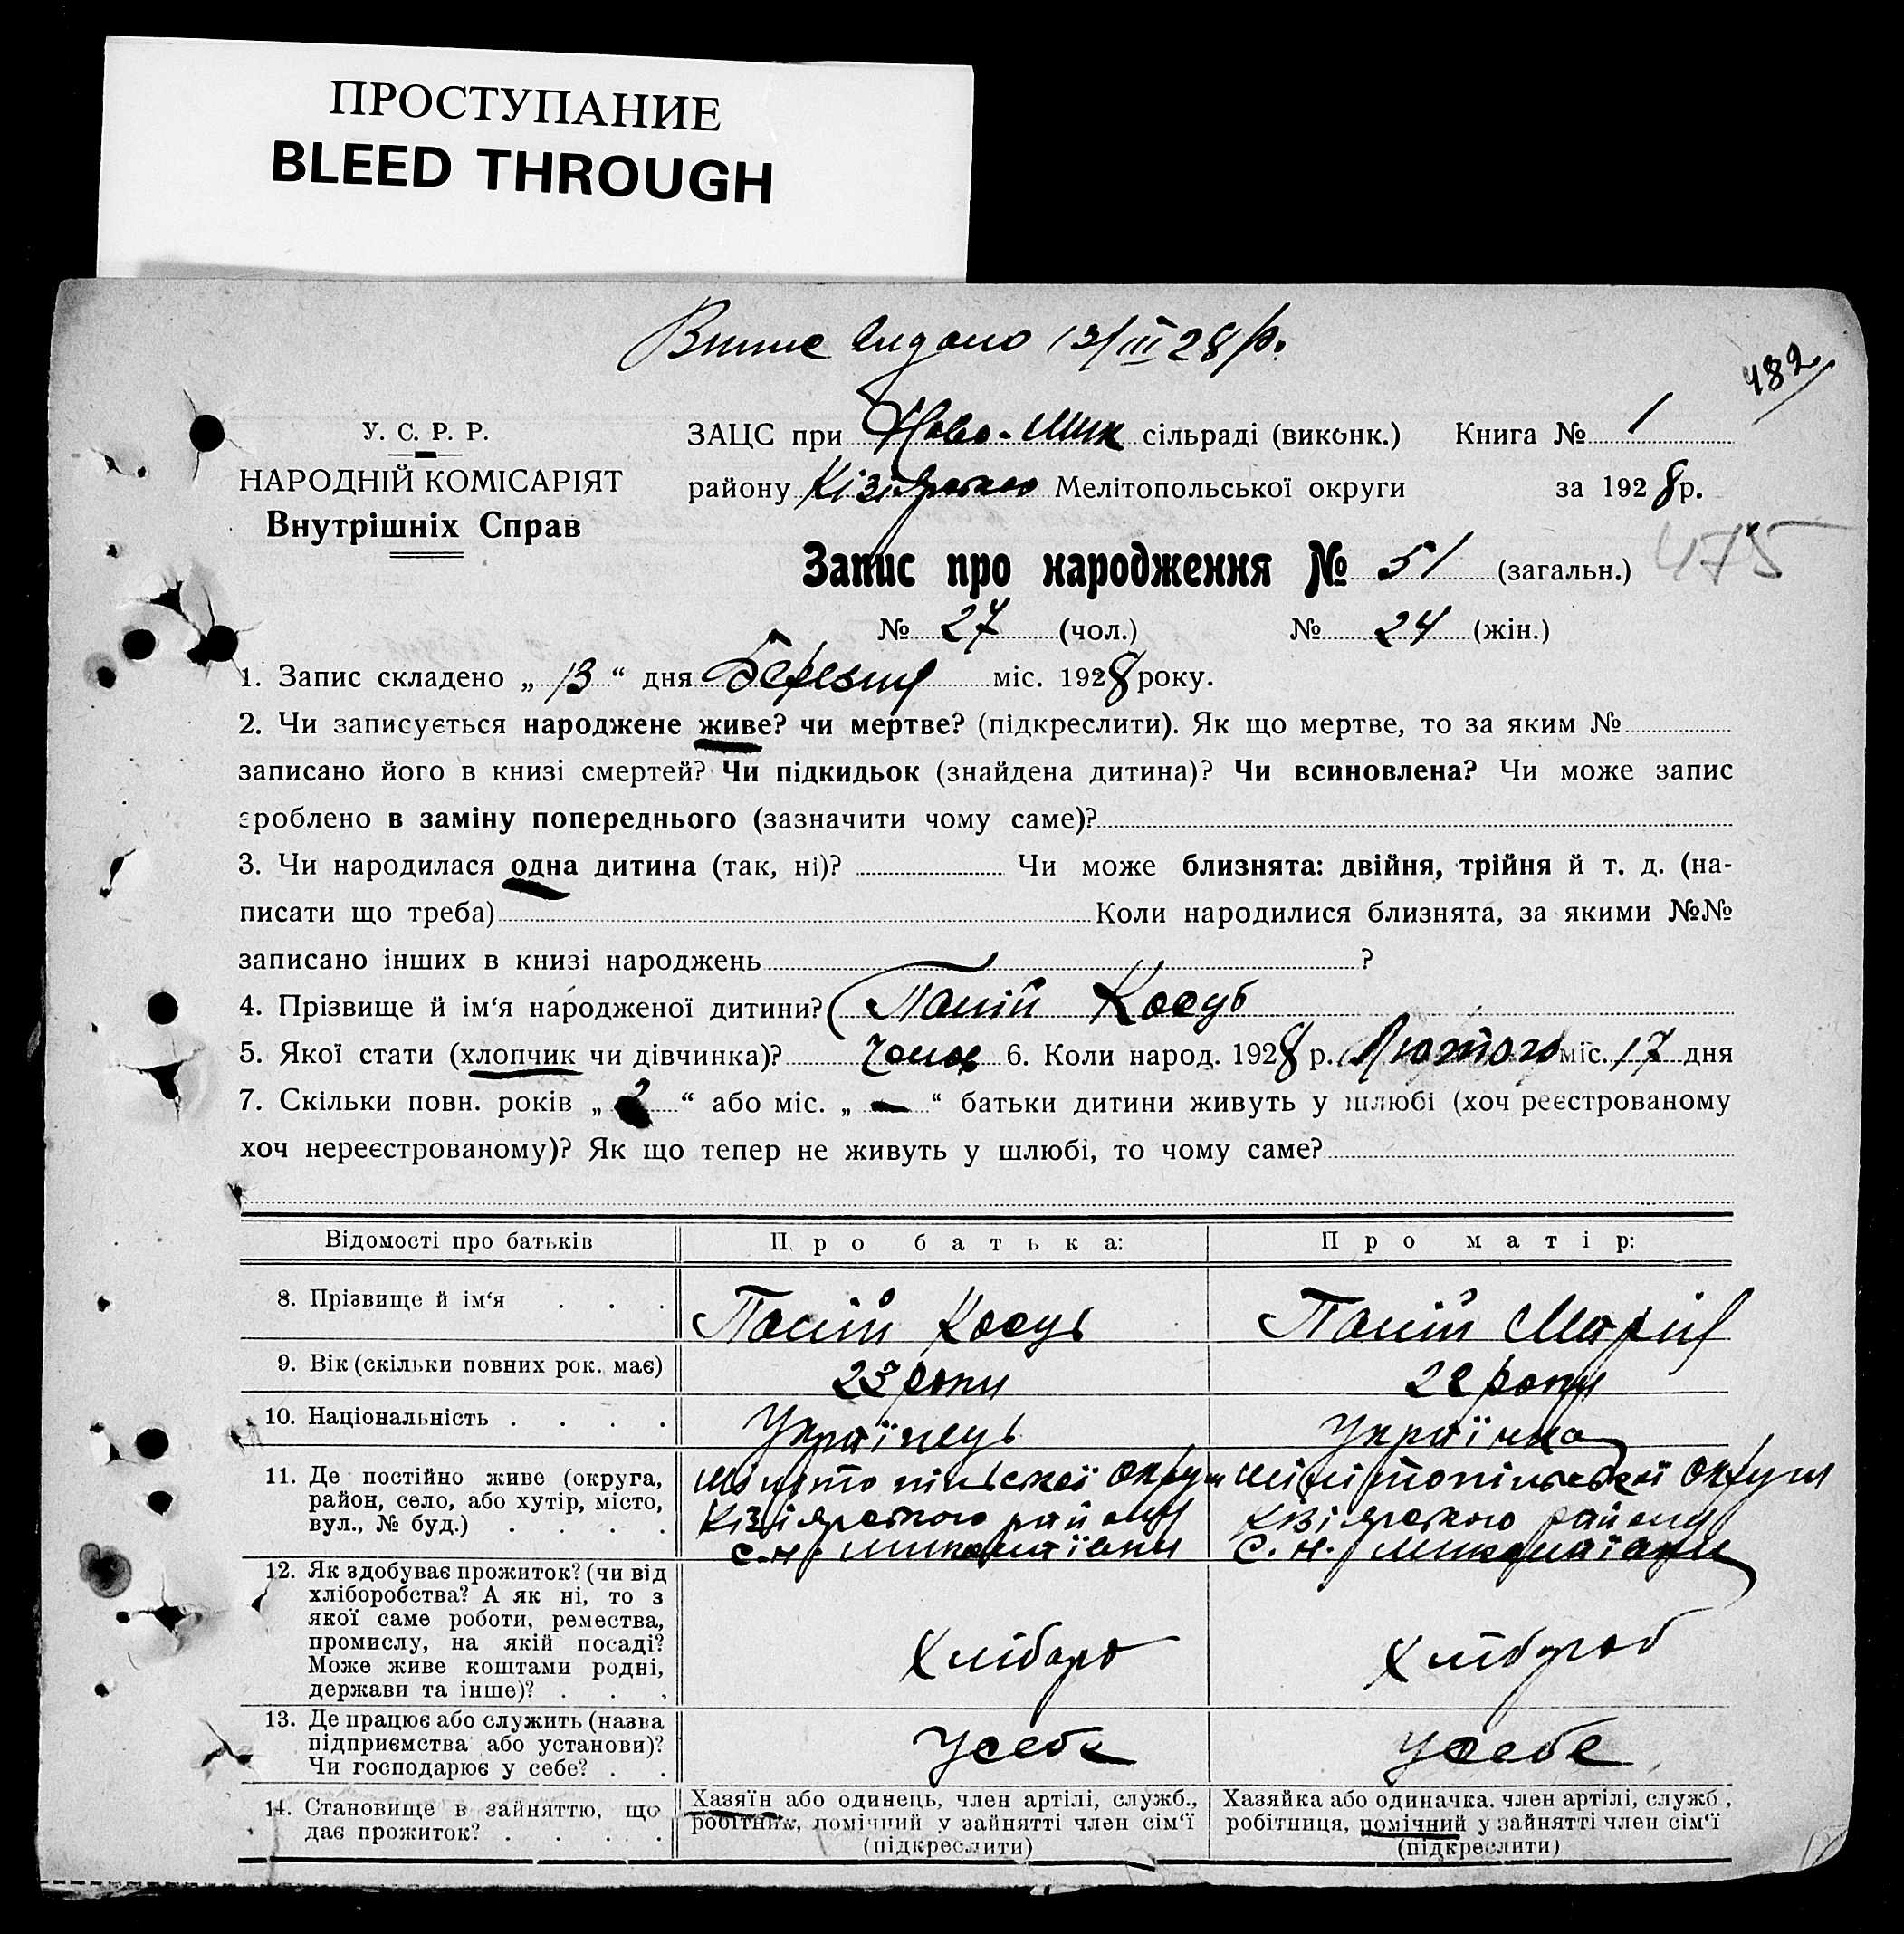 ПРОСТУПАНИЕ
BLEED THROUGH
видано 13/III 28 р.
482
У. С. Р. Р.
НАРОДНІЙ КОМІСАРІЯТ
Внутрішніх Справ
ЗАЦС при Ново-Мик сільраді (виконк.) Книга № 1
району Кізіярського Мелітопольської округи за 1928 р.
Запис про народження № 51 (загальн.) 475
№ 27 (чол.) № 24 (жін.)
1. Запис складено „ 13 “ дня Березня міс. 1928 року.
2. Чи записується народжене живе? чи мертве? (підкреслити). Як що мертве, то за яким №
записано його в книзі смертей? Чи підкидьок (знайдена дитина)? Чи всиновлена? Чи може запис
зроблено в заміну попереднього (зазначити чому саме)?
3. Чи народилася одна дитина (так, ні)? Чи може близнята: двійня, трійня й т. д. (на-
писати що треба) Коли народилися близнята, за якими №№
записано інших в книзі народжень ?
4. Прізвище й ім‘я народженої дитини?
5. Якої стати (хлопчик чи дівчинка)? 6. Коли народ. 1928 р. Лютого міс. 17 дня
7. Скільки повн. років „ “ або міс. „ — “ батьки дитини живуть у шлюбі (хоч реєстрованому
хоч нереєстрованому)? Як що тепер не живуть у шлюбі, то чому саме?
Відомості про батьків Про батька: Про матір:
8. Прізвище й ім‘я . . . Марія
9. Вік (скільки повних рок. має) 23 роки 22 роки
10. Національність . . . . Українець Українка
11. Де постійно живе (округа,
район, село, або хутір, місто,
вул., № буд.) . . . .
Округи Округи
Кізіярського району Кізіярського району
с. Н. с. Н.
12. Як здобуває прожиток? (чи від
хліборобства? А як ні, то з
якої саме роботи, ремества,
промислу, на якій посаді?
Може живе коштами родні,
держави та інше)? . . .
Хлібороб Хлібороб
13. Де працює або служить (назва
підприємства або установи)?
Чи господарює у себе? . .
У себе У себе
14. Становище в зайняттю, що
дає прожиток? . . . . .
Хазяїн або одинець, член артілі, служб.,
робітник, помічний у зайнятті член сім‘ї
(підкреслити)
Хазяйка або одиначка, член артілі, служб.,
робітниця, помічний у зайнятті член сім‘ї
(підкреслити)